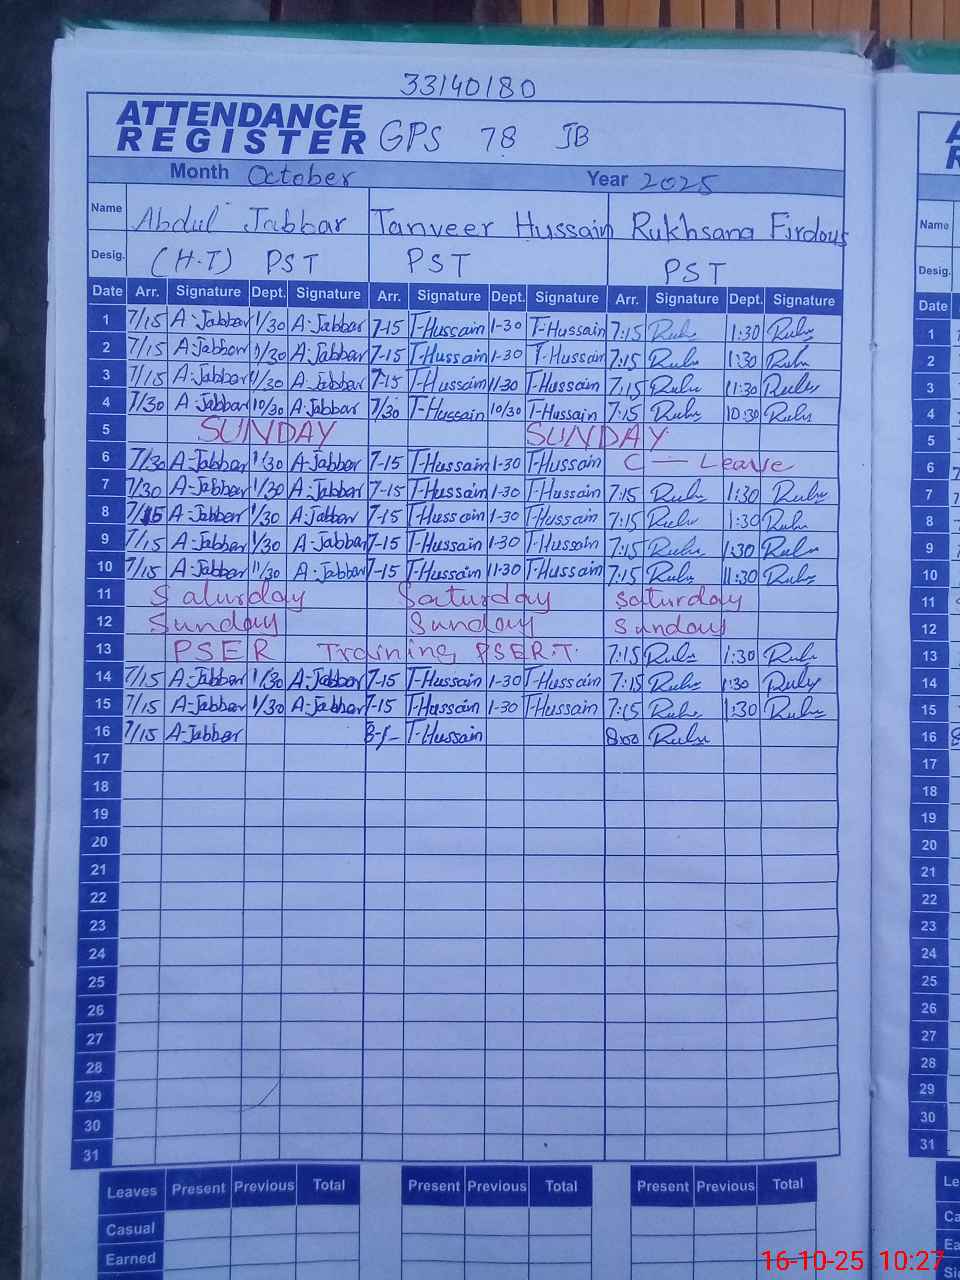 33140180
ATTENDANCE
REGISTER GPS 78 JB
Month October Year 2025
Name Abdul Jabbar Tanveer Hussain Rukhsana Firdous
Desig. (H-T) PST PST PST
Date Arr. Signature Dept. Signature Arr. Signature Dept. Signature Arr. Signature Dept. Signature
1 7/15 A-Jabbar 1/30 A-Jabbar 7-15 T-Hussain 1-30 T-Hussain 7:15 1:30
2 7/15 A-Jabbar 1/30 A-Jabbar 7-15 T-Hussain 1-30 T-Hussain 7:15 1:30
3 7/15 A-Jabbar 11/30 A-Jabbar 7-15 T-Hussain 11-30 T-Hussain 7:15 11:30
4 7/30 A-Jabbar 10/30 A-Jabbar 7/30 T-Hussain 10/30 T-Hussain 7:15 10:30
5 SUNDAY SUNDAY
6 7/30 A-Jabbar 1/30 A-Jabbar 7-15 T-Hussain 1-30 T-Hussain C — Leave
7 7/30 A-Jabbar 1/30 A-Jabbar 7-15 T-Hussain 1-30 T-Hussain 7:15 1:30
8 7/15 A-Jabbar 1/30 A-Jabbar 7-15 T-Hussain 1-30 T-Hussain 7:15 1:30
9 7/15 A-Jabbar 1/30 A-Jabbar 7-15 T-Hussain 1-30 T-Hussain 7:15 1:30
10 7/15 A-Jabbar 11/30 A-Jabbar 7-15 T-Hussain 11-30 T-Hussain 7:15 11:30
11 Saturday Saturday Saturday
12 Sunday Sunday Sunday
13 PSER Training PSER.T. 7:15 1:30
14 7/15 A-Jabbar 1/30 A-Jabbar 7-15 T-Hussain 1-30 T-Hussain 7:15 1:30
15 7/15 A-Jabbar 1/30 A-Jabbar 7-15 T-Hussain 1-30 T-Hussain 7:15 1:30
16 7/15 A-Jabbar T-Hussain 8:00
17
18
19
20
21
22
23
24
25
26
27
28
29
30
31
Leaves Present Previous Total Present Previous Total Present Previous Total
Casual
Earned
Name
Desig.
Date
1
2
3
4
5
6
7
8
9
10
11
12
13
14
15
16
17
18
19
20
21
22
23
24
25
26
27
28
29
30
31
16-10-25 10:27